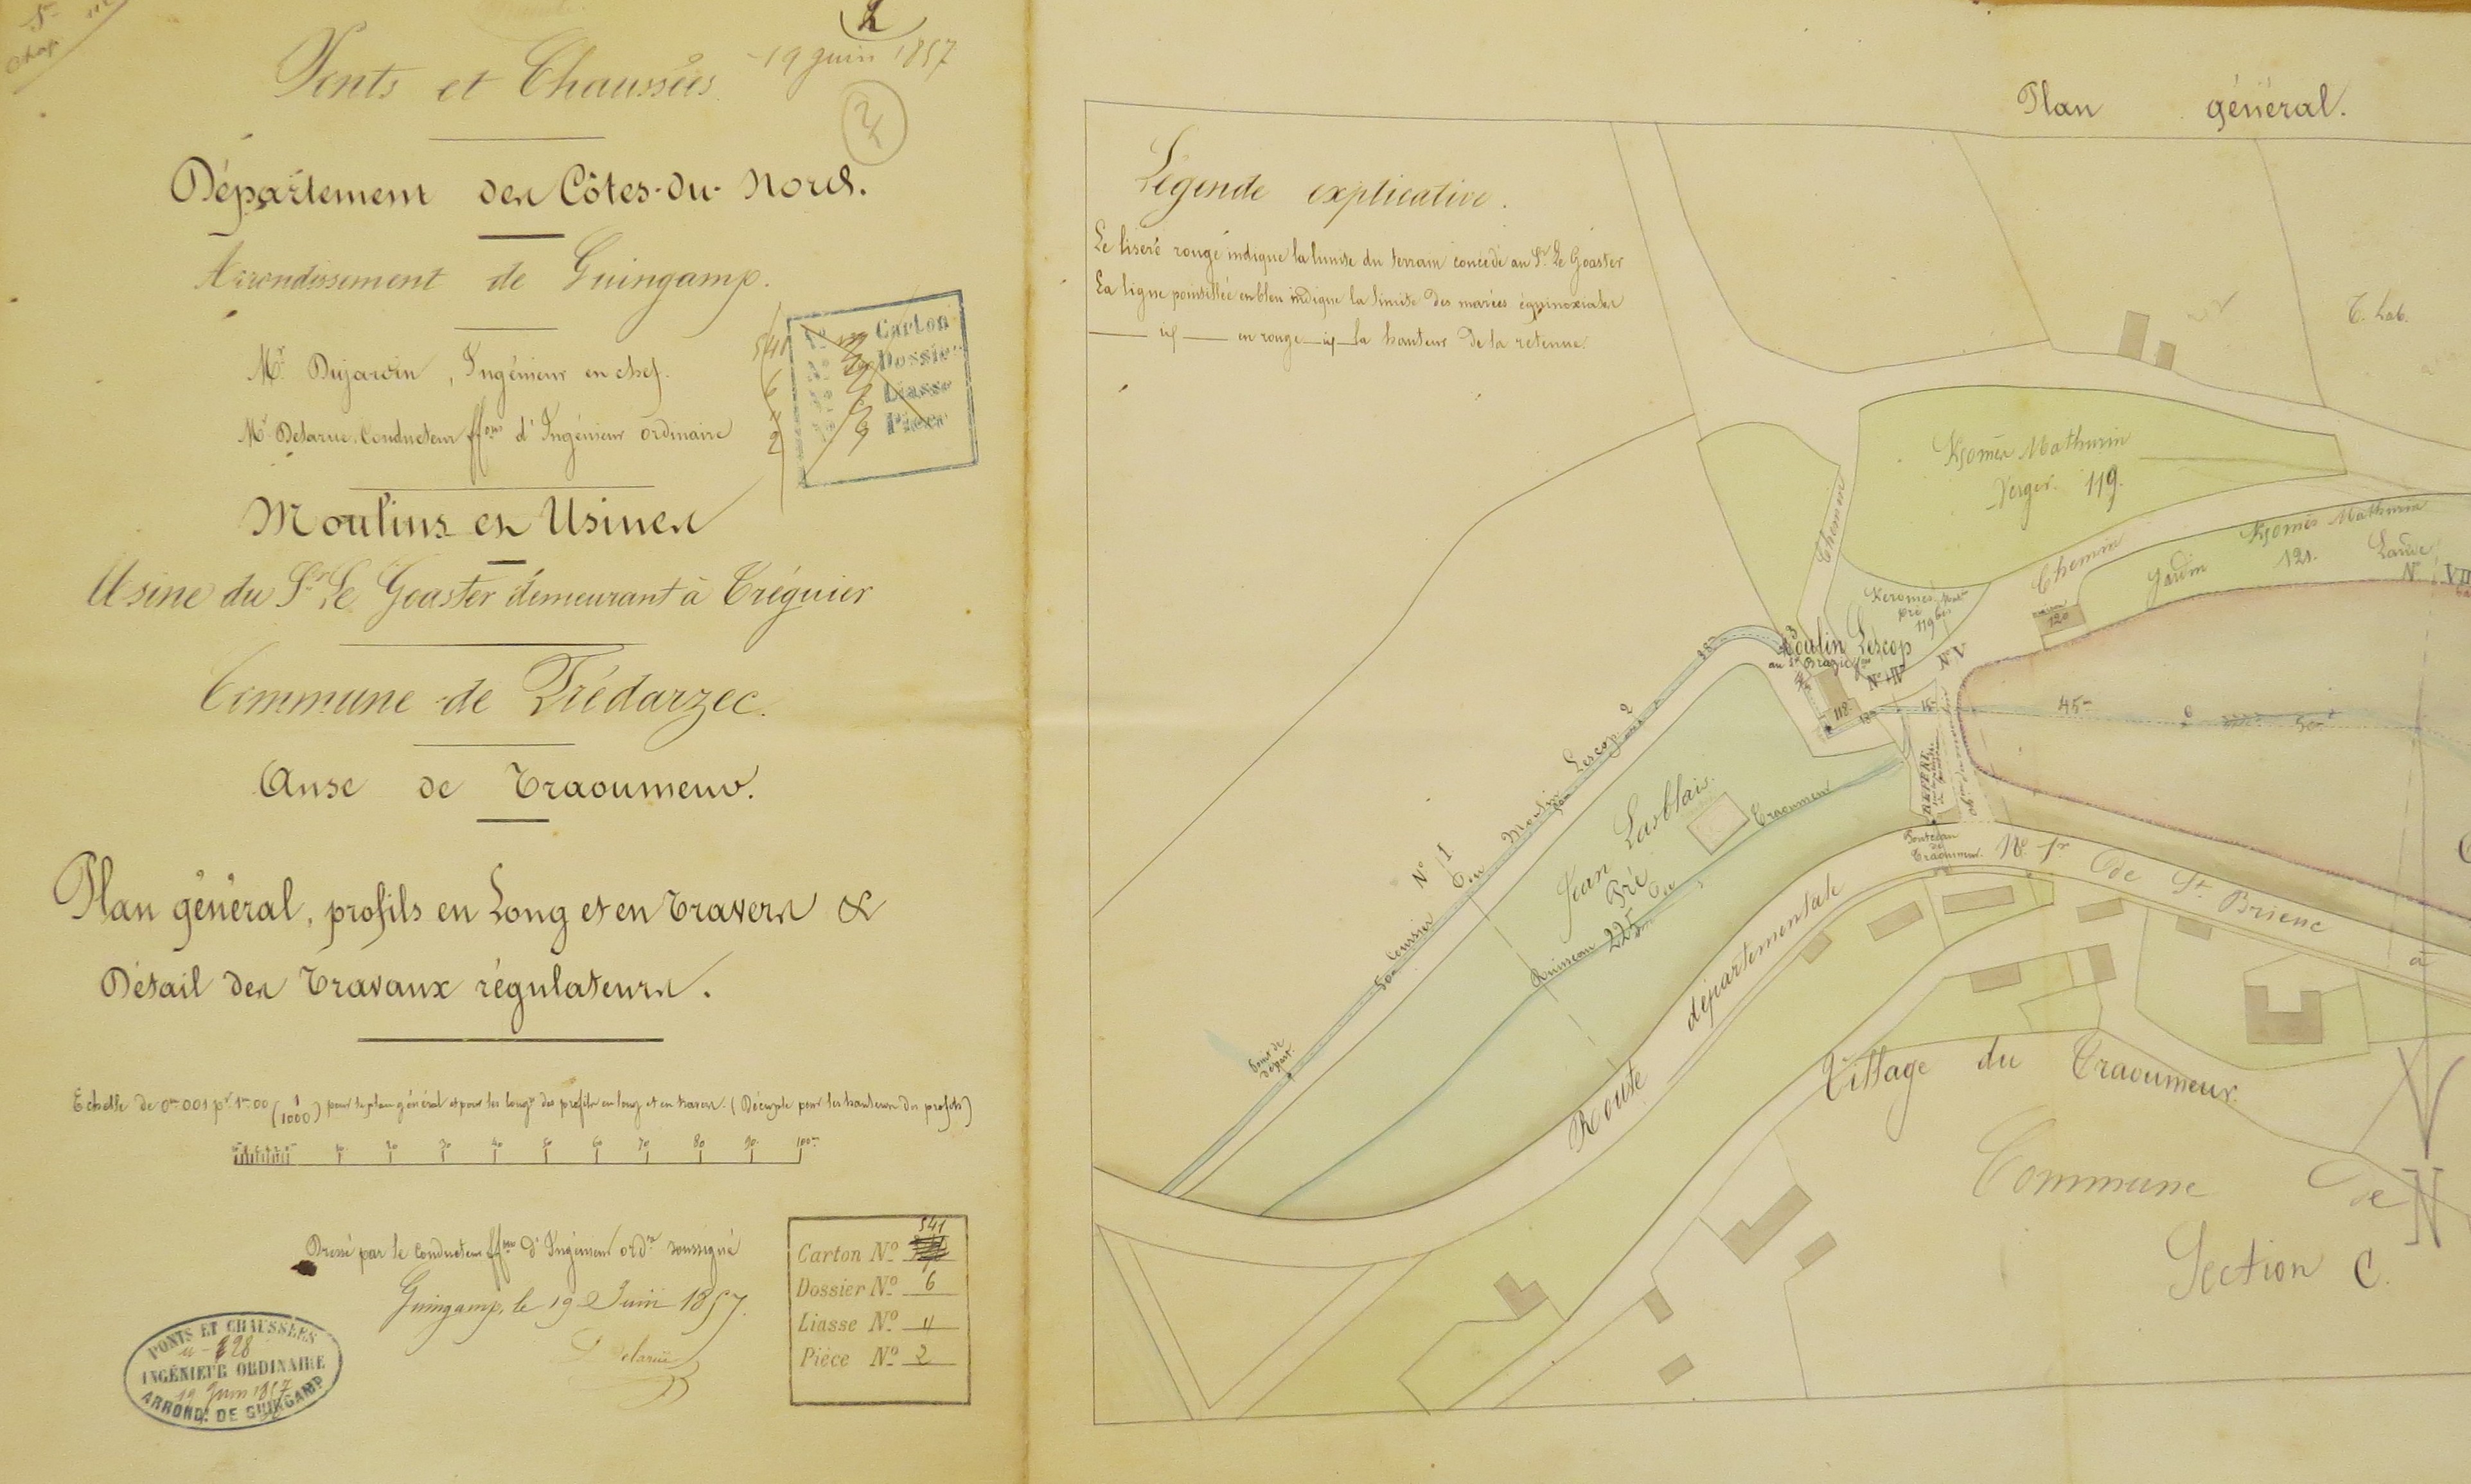 Ponts et Chaussées
19 Juin 1857
2
Département des Côtes-du-Nord.
Arrondissement de Guingamp.
Mr. Dujardin, Ingénieur en chef.
Mr. Delarue, Conducteur ffons d'Ingénieur ordinaire
541
6
4
2
Carton
Dossier
Liasse
Pièce
Moulins et Usines
Usine du Sr. Le Goaster demeurant à Tréguier
Commune de Trédarzec.
Anse de Traoumeur.
Plan général, profils en Long et en Travers &
Détail des Travaux régulateurs.
Echelle de 0m001 pr 1m00 (1/1000) pour le plan général et pour les longrs des profils en long et en travers. (Décuple pour les hauteurs des profils)
10 20 30 40 50 60 70 80 90 100m
Dressé par le Conducteur ffons d'Ingénieur ordre soussigné
Guingamp, le 19 Juin 1857.
Delarue
PONTS ET CHAUSSÉES
INGÉNIEUR ORDINAIRE
19 Juin 1857
ARROND.t DE GUINGAMP
Carton No 541
Dossier No 6
Liasse No 4
Pièce No 2
Plan général.
Légende explicative.
Le liseré rouge indique la limite du terrain concédé au Sr. Le Goaster
La ligne pointillée en bleu indique la limite des marées équinoxiales
— id — en rouge — id — la hauteur de la retenue.
T. Lab.
Kjomès Mathurin
Verger. 119.
Chemin
Chemin
Kjomès Mathurin
Jardin 121. Lande
No VII
120
119 bis
Moulin Lescop
No IV
No V
118
15m
45m
50m
REPÈRE
Ponceau
de
Traoumeur
Coursier Du Moulin Lescop
50m
No I
Point de
départ
Jean Lasblais.
Pré
225m
Ruisseau Du Traoumeur
Route départementale No 1er De St. Brieuc à
Village du Traoumeur.
Commune De
Section C.
N